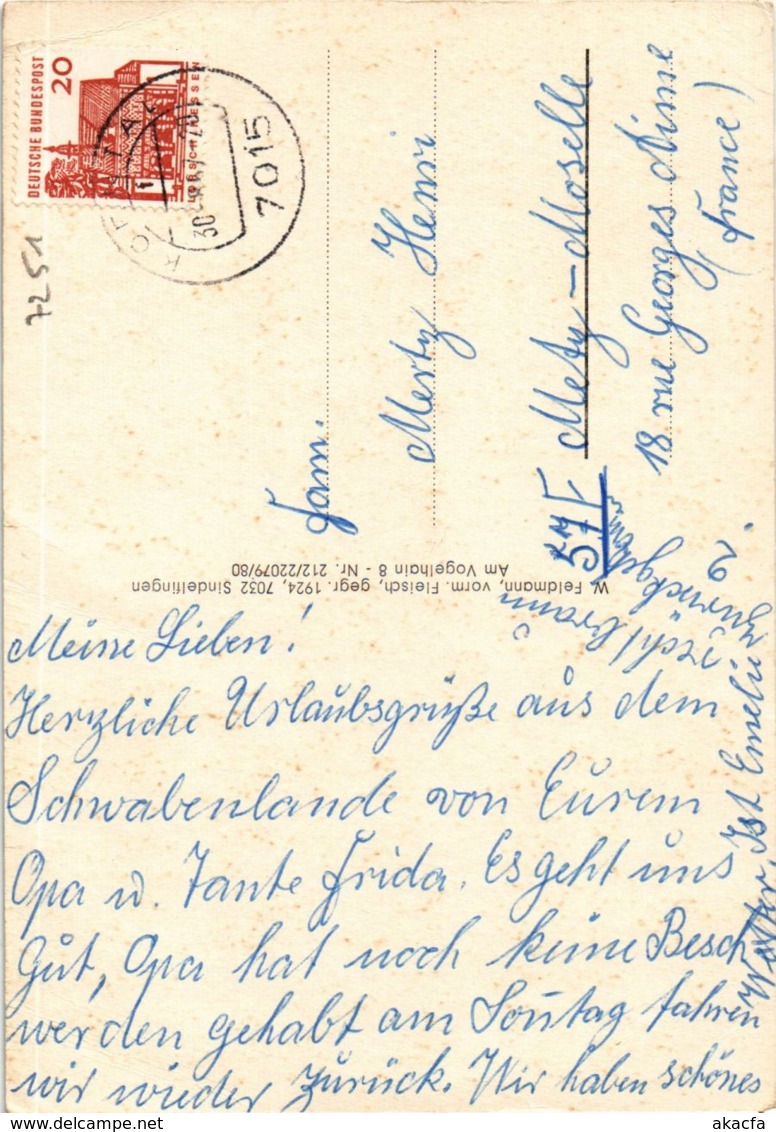 DEUTSCHE BUNDESPOST
20
LORSCH / HESSEN
7015
30
7251
Fam.
Mertz Henri
57 F Metz-Moselle
18 rue Georges Aimé
(France)
W. Feldmann, vorm. Fleisch, gegr. 1924, 7032 Sindelfingen
Am Vogelhain 8 - Nr. 212/22079/80
Meine Lieben!
Herzliche Urlaubsgrüße aus dem
Schwabenlande von Eurem
Opa u. Tante Frida. Es geht uns
Gut, Opa hat noch keine Besch
werden gehabt am Sontag fahren
wir wieder Zurück. Wir haben schönes
Wetter, Ist Emelie
akacfa
akacfa